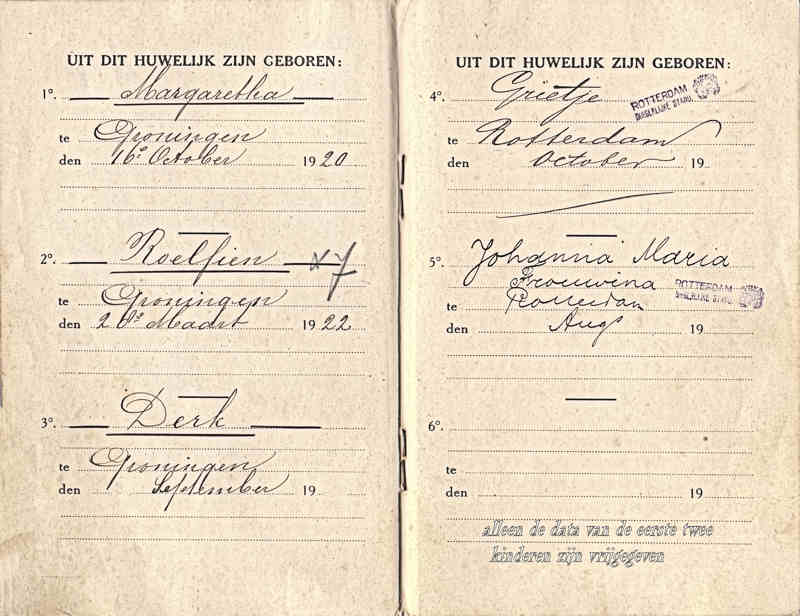 UIT DIT HUWELIJK ZIJN GEBOREN:
1º. Margaretha
te Groningen
den 16e October 1920
2º. Roelfien
te Groningen
den 20e Maart 1922
3º. Derk
te Groningen
den September 19
UIT DIT HUWELIJK ZIJN GEBOREN:
4º. Grietje
ROTTERDAM
BURGERLIJKE STAND
te Rotterdam
den October 19
5º. Johanna Maria
Frouwina
te Rotterdam
ROTTERDAM
BURGERLIJKE STAND
den Aug 19
6º.
te
den 19
alleen de data van de eerste twee
kinderen zijn vrijgegeven